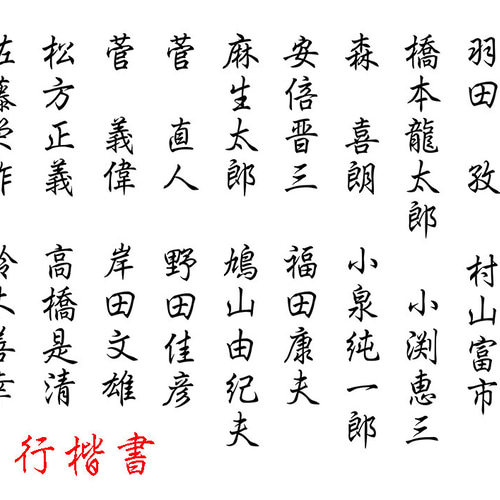 羽田　孜　村山富市
橋本龍太郎　小渕恵三
森　喜朗　小泉純一郎
安倍晋三　福田康夫
麻生太郎　鳩山由紀夫
菅　直人　野田佳彦
菅　義偉　岸田文雄
松方正義　高橋是清
佐藤栄作　鈴木善幸
行楷書